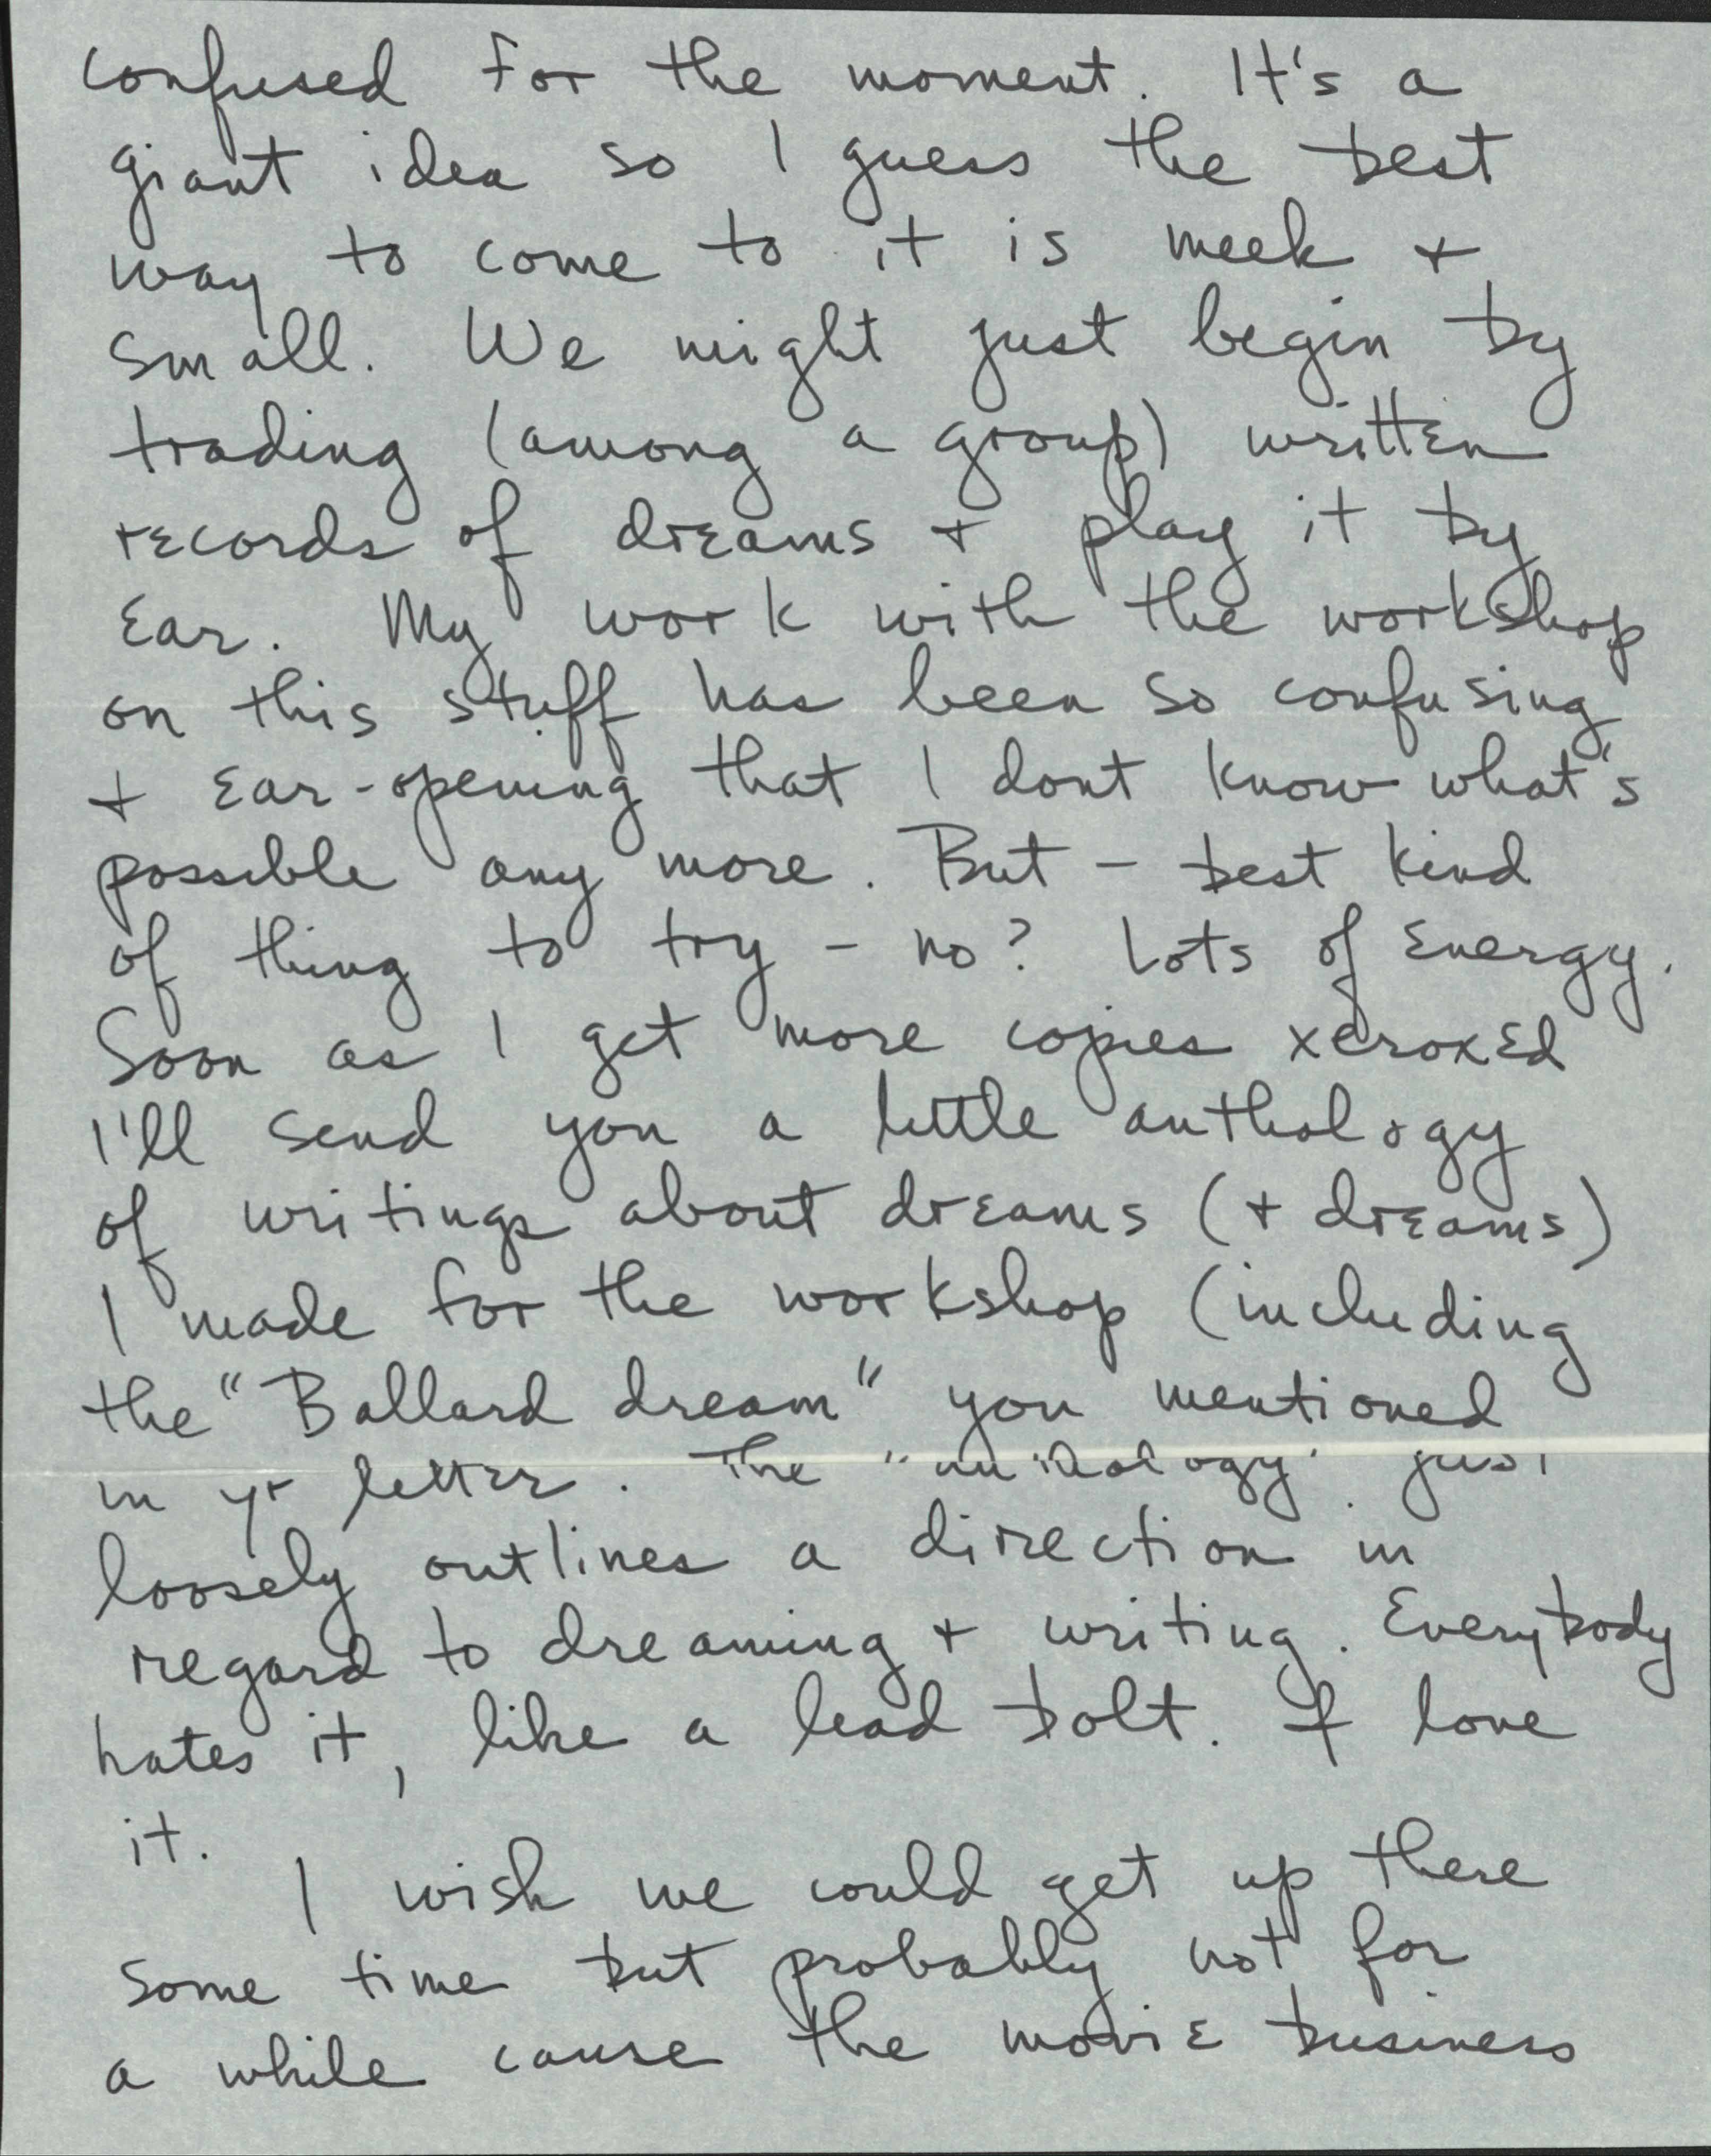 confused for the moment. It's a
giant idea so I guess the best
way to come to it is meek +
small. We might just begin by
trading (among a group) written
records of dreams + play it by
Ear. My work with the workshop
on this stuff has been so confusing
+ Ear-opening that I dont know what's
possible any more. But - best kind
of thing to try - no? Lots of Energy.
Soon as I get more copies xeroxed
I'll send you a little anthology
of writings about dreams (+ dreams)
I made for the workshop (including
the "Ballard dream" you mentioned
in yr letter. The "anthology" just
loosely outlines a direction in
regard to dreaming + writing. Everybody
hates it, like a lead bolt. I love
it.
I wish we could get up there
some time but probably not for
a while cause the movie business